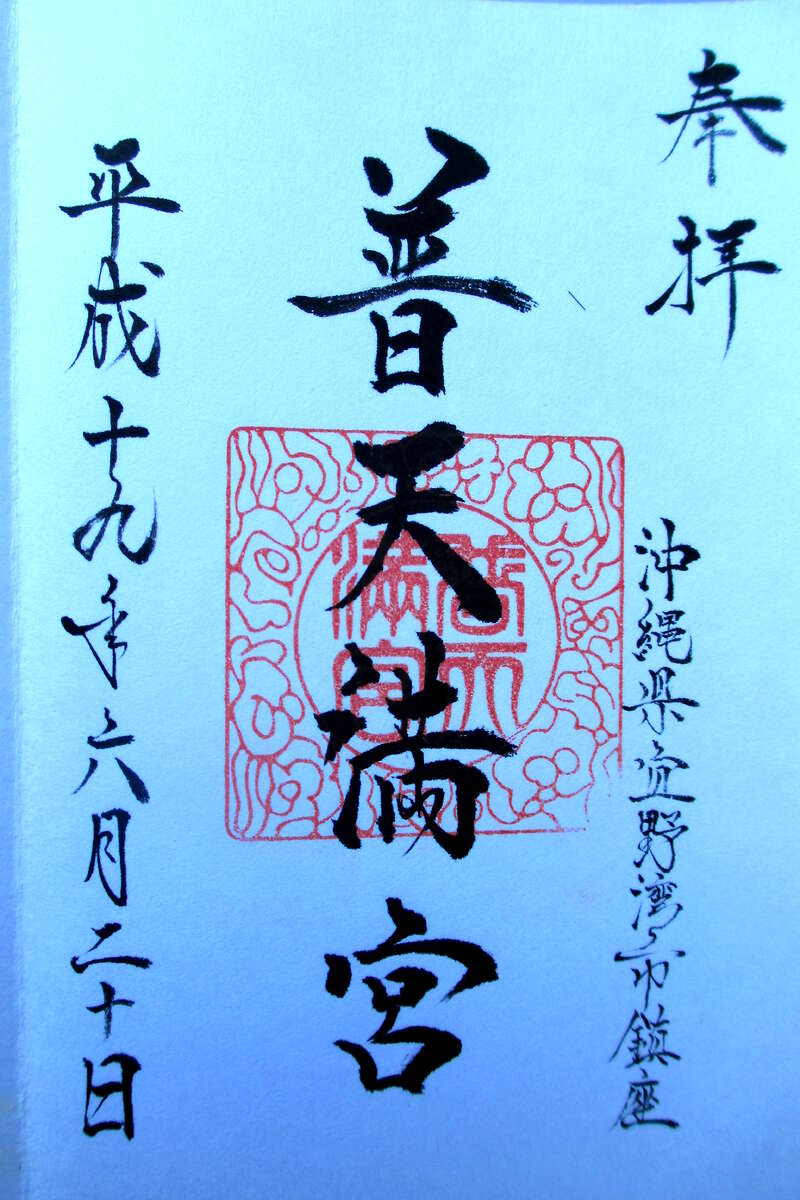 奉拝
沖縄県宜野湾市鎮座
普天満宮
普天
満宮
平成十九年六月二十日